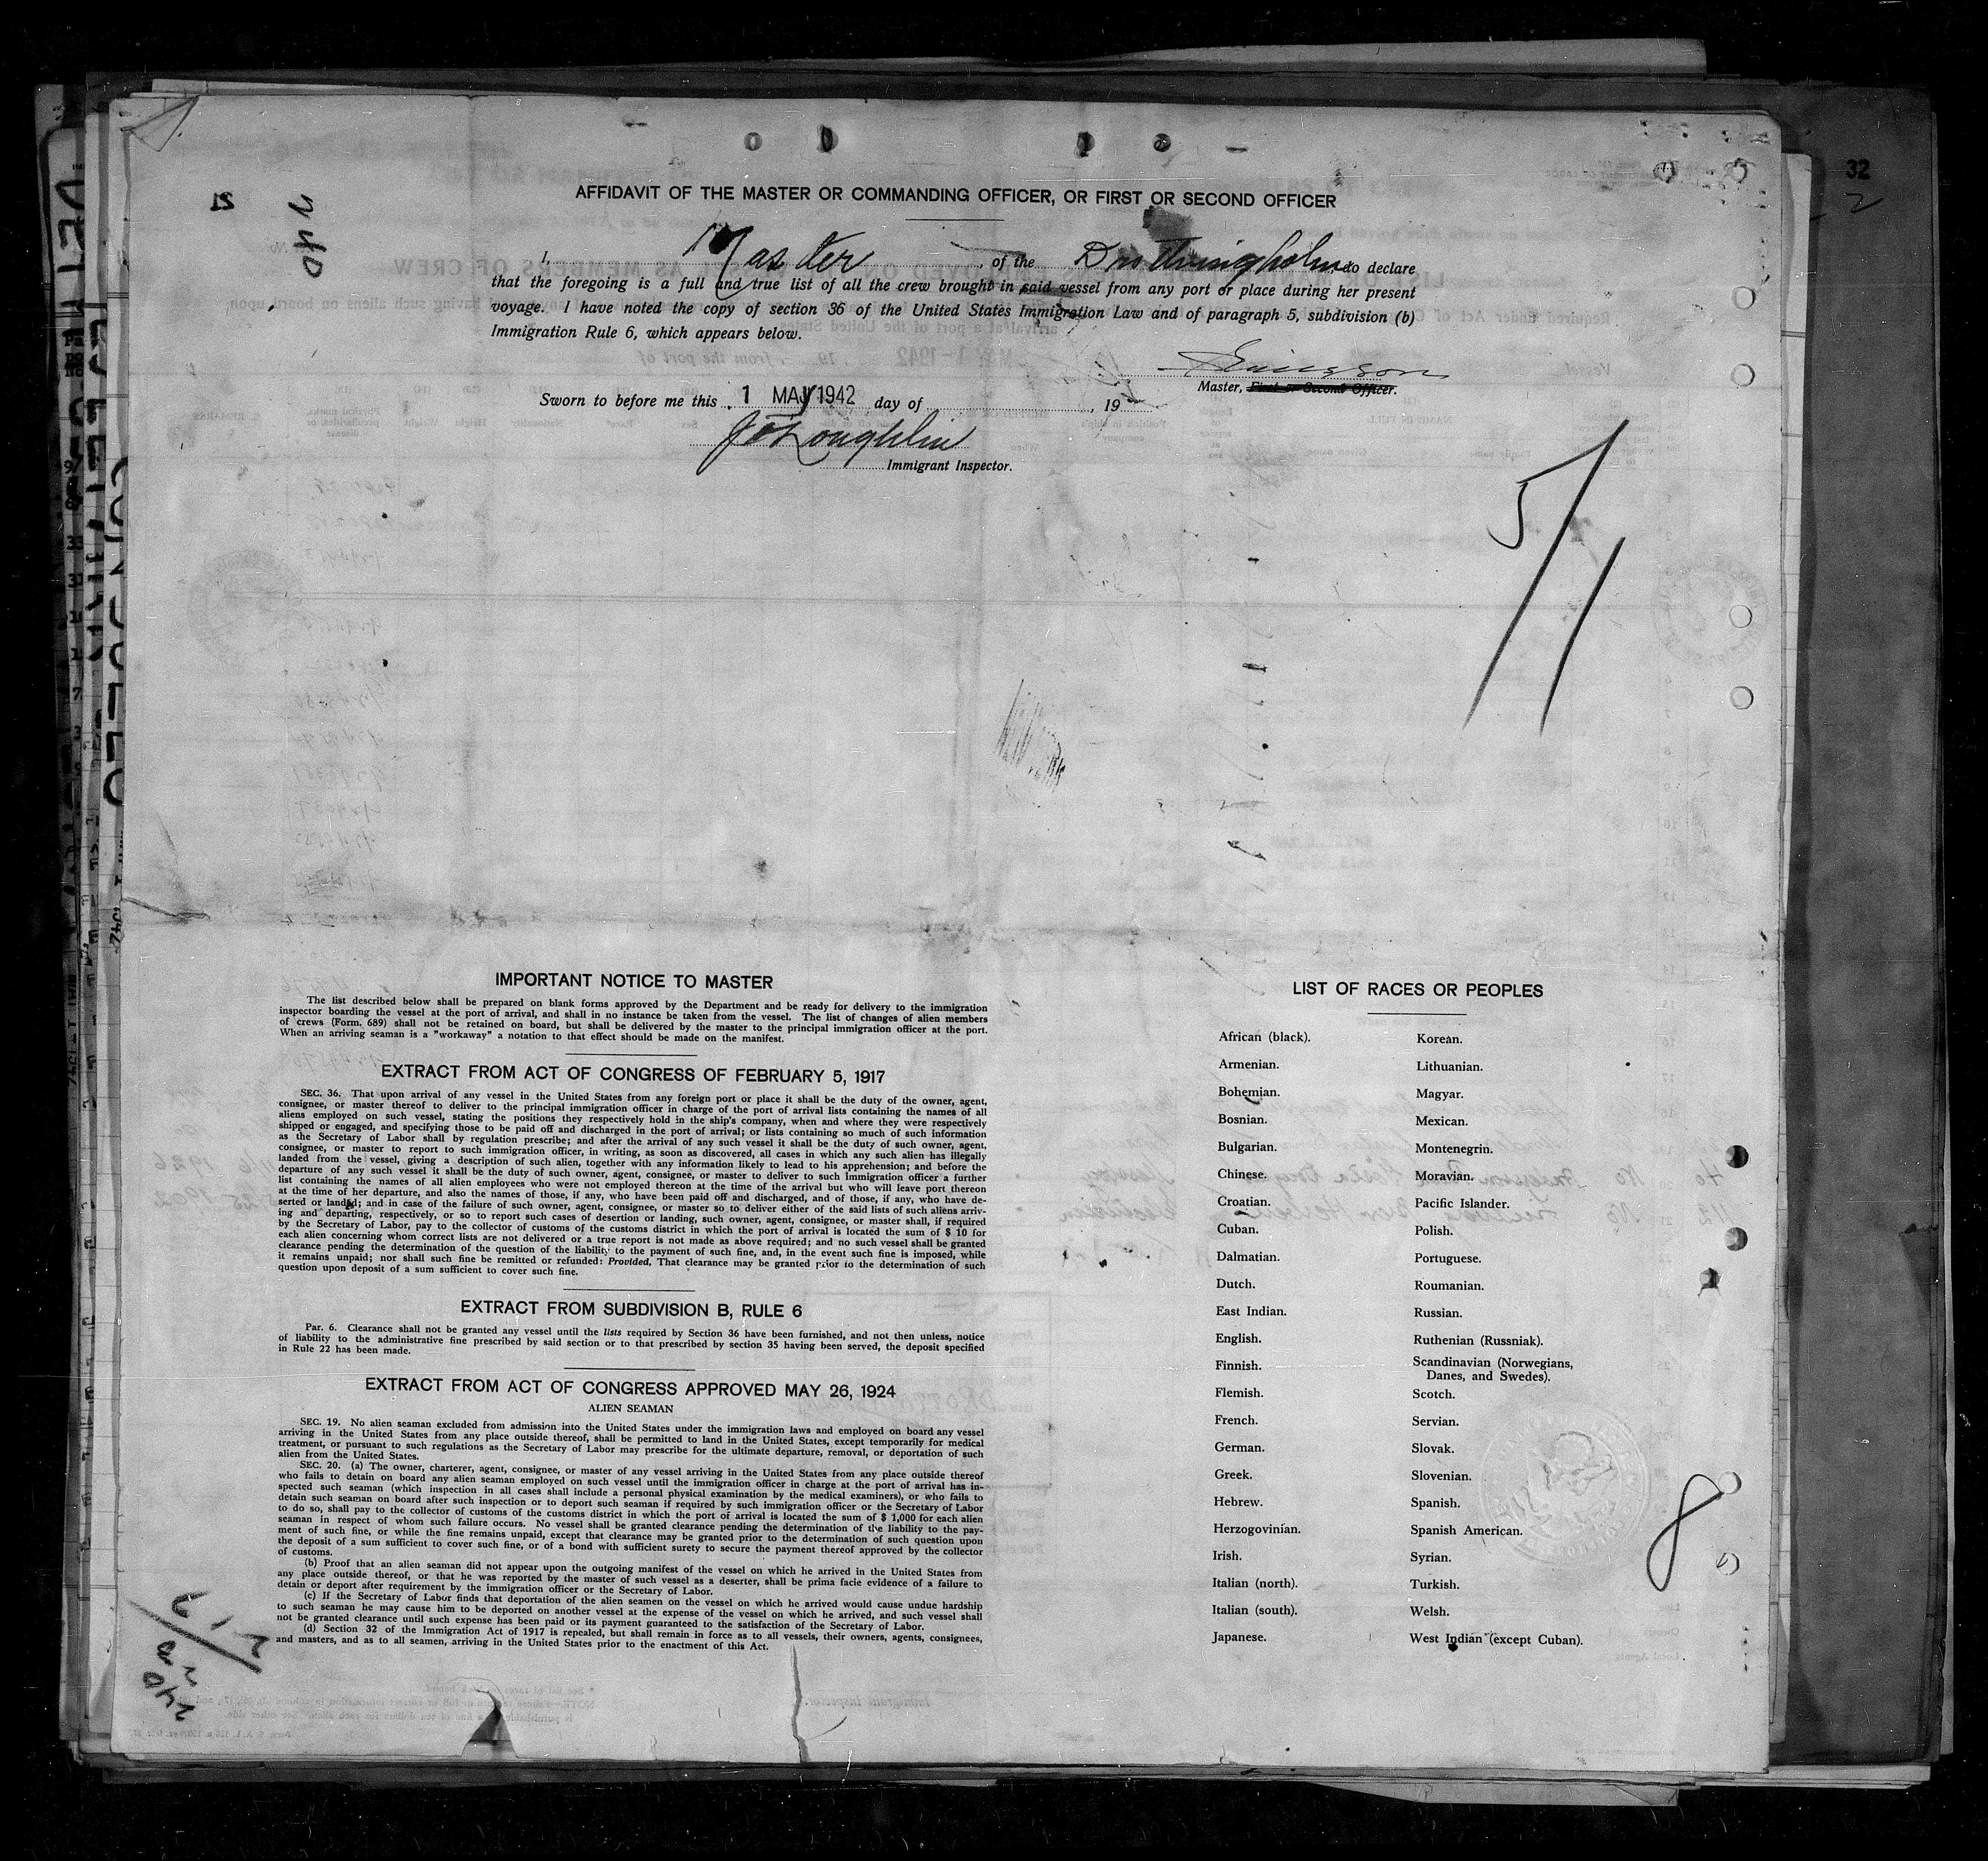 32
2
21
AFFIDAVIT OF THE MASTER OR COMMANDING OFFICER, OR FIRST OR SECOND OFFICER
I, Master of the Drottningholm, do declare
that the foregoing is a full and true list of all the crew brought in said vessel from any port or place during her present
voyage. I have noted the copy of section 36 of the United States Immigration Law and of paragraph 5, subdivision (b)
Immigration Rule 6, which appears below.
Master, First or Second Officer.
Sworn to before me this 1 MAY 1942 day of , 19
Immigrant Inspector.
IMPORTANT NOTICE TO MASTER
The list described below shall be prepared on blank forms approved by the Department and be ready for delivery to the immigration
inspector boarding the vessel at the port of arrival, and shall in no instance be taken from the vessel. The list of changes of alien members
of crews (Form. 689) shall not be retained on board, but shall be delivered by the master to the principal immigration officer at the port.
When an arriving seaman is a "workaway" a notation to that effect should be made on the manifest.
EXTRACT FROM ACT OF CONGRESS OF FEBRUARY 5, 1917
SEC. 36. That upon arrival of any vessel in the United States from any foreign port or place it shall be the duty of the owner, agent,
consignee, or master thereof to deliver to the principal immigration officer in charge of the port of arrival lists containing the names of all
aliens employed on such vessel, stating the positions they respectively hold in the ship's company, when and where they were respectively
shipped or engaged, and specifying those to be paid off and discharged in the port of arrival; or lists containing so much of such information
as the Secretary of Labor shall by regulation prescribe; and after the arrival of any such vessel it shall be the duty of such owner, agent,
consignee, or master to report to such immigration officer, in writing, as soon as discovered, all cases in which any such alien has illegally
landed from the vessel, giving a description of such alien, together with any information likely to lead to his apprehension; and before the
departure of any such vessel it shall be the duty of such owner, agent, consignee, or master to deliver to such immigration officer a further
list containing the names of all alien employees who were not employed thereon at the time of the arrival but who will leave port thereon
at the time of her departure, and also the names of those, if any, who have been paid off and discharged, and of those, if any, who have de-
serted or landed; and in case of the failure of such owner, agent, consignee, or master so to deliver either of the said lists of such aliens arriv-
ing and departing, respectively, or so to report such cases of desertion or landing, such owner, agent, consignee, or master shall, if required
by the Secretary of Labor, pay to the collector of customs of the customs district in which the port of arrival is located the sum of $ 10 for
each alien concerning whom correct lists are not delivered or a true report is not made as above required; and no such vessel shall be granted
clearance pending the determination of the question of the liability to the payment of such fine, and, in the event such fine is imposed, while
it remains unpaid; nor shall such fine be remitted or refunded: Provided, That clearance may be granted prior to the determination of such
question upon deposit of a sum sufficient to cover such fine.
EXTRACT FROM SUBDIVISION B, RULE 6
Par. 6. Clearance shall not be granted any vessel until the lists required by Section 36 have been furnished, and not then unless, notice
of liability to the administrative fine prescribed by said section or to that prescribed by section 35 having been served, the deposit specified
in Rule 22 has been made.
EXTRACT FROM ACT OF CONGRESS APPROVED MAY 26, 1924
ALIEN SEAMAN
SEC. 19. No alien seaman excluded from admission into the United States under the immigration laws and employed on board any vessel
arriving in the United States from any place outside thereof, shall be permitted to land in the United States, except temporarily for medical
treatment, or pursuant to such regulations as the Secretary of Labor may prescribe for the ultimate departure, removal, or deportation of such
alien from the United States.
SEC. 20. (a) The owner, charterer, agent, consignee, or master of any vessel arriving in the United States from any place outside thereof
who fails to detain on board any alien seaman employed on such vessel until the immigration officer in charge at the port of arrival has in-
spected such seaman (which inspection in all cases shall include a personal physical examination by the medical examiners), or who fails to
detain such seaman on board after such inspection or to deport such seaman if required by such immigration officer or the Secretary of Labor
to do so, shall pay to the collector of customs of the customs district in which the port of arrival is located the sum of $ 1,000 for each alien
seaman in respect of whom such failure occurs. No vessel shall be granted clearance pending the determination of the liability to the pay-
ment of such fine, or while the fine remains unpaid, except that clearance may be granted prior to the determination of such question upon
the deposit of a sum sufficient to cover such fine, or of a bond with sufficient surety to secure the payment thereof approved by the collector
of customs.
(b) Proof that an alien seaman did not appear upon the outgoing manifest of the vessel on which he arrived in the United States from
any place outside thereof, or that he was reported by the master of such vessel as a deserter, shall be prima facie evidence of a failure to
detain or deport after requirement by the immigration officer or the Secretary of Labor.
(c) If the Secretary of Labor finds that deportation of the alien seamen on the vessel on which he arrived would cause undue hardship
to such seaman he may cause him to be deported on another vessel at the expense of the vessel on which he arrived, and such vessel shall
not be granted clearance until such expense has been paid or its payment guaranteed to the satisfaction of the Secretary of Labor.
(d) Section 32 of the Immigration Act of 1917 is repealed, but shall remain in force as to all vessels, their owners, agents, consignees,
and masters, and as to all seamen, arriving in the United States prior to the enactment of this Act.
LIST OF RACES OR PEOPLES
African (black).
Armenian.
Bohemian.
Bosnian.
Bulgarian.
Chinese.
Croatian.
Cuban.
Dalmatian.
Dutch.
East Indian.
English.
Finnish.
Flemish.
French.
German.
Greek.
Hebrew.
Herzogovinian.
Irish.
Italian (north).
Italian (south).
Japanese.
Korean.
Lithuanian.
Magyar.
Mexican.
Montenegrin.
Moravian.
Pacific Islander.
Polish.
Portuguese.
Roumanian.
Russian.
Ruthenian (Russniak).
Scandinavian (Norwegians,
Danes, and Swedes).
Scotch.
Servian.
Slovak.
Slovenian.
Spanish.
Spanish American.
Syrian.
Turkish.
Welsh.
West Indian (except Cuban).
8